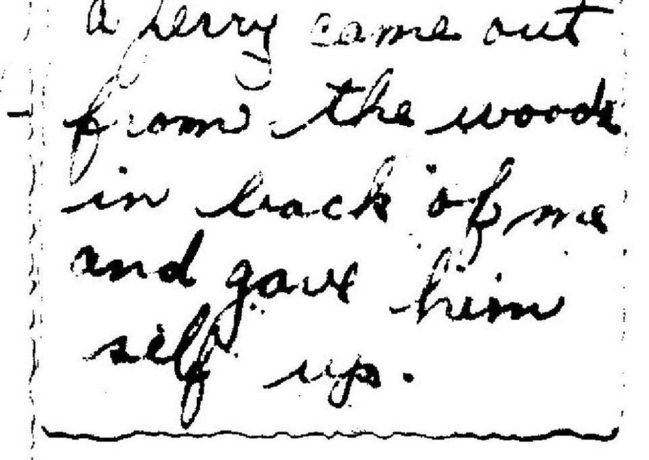 a jerry came out
from the woods
in back of me
and gave him
self up.